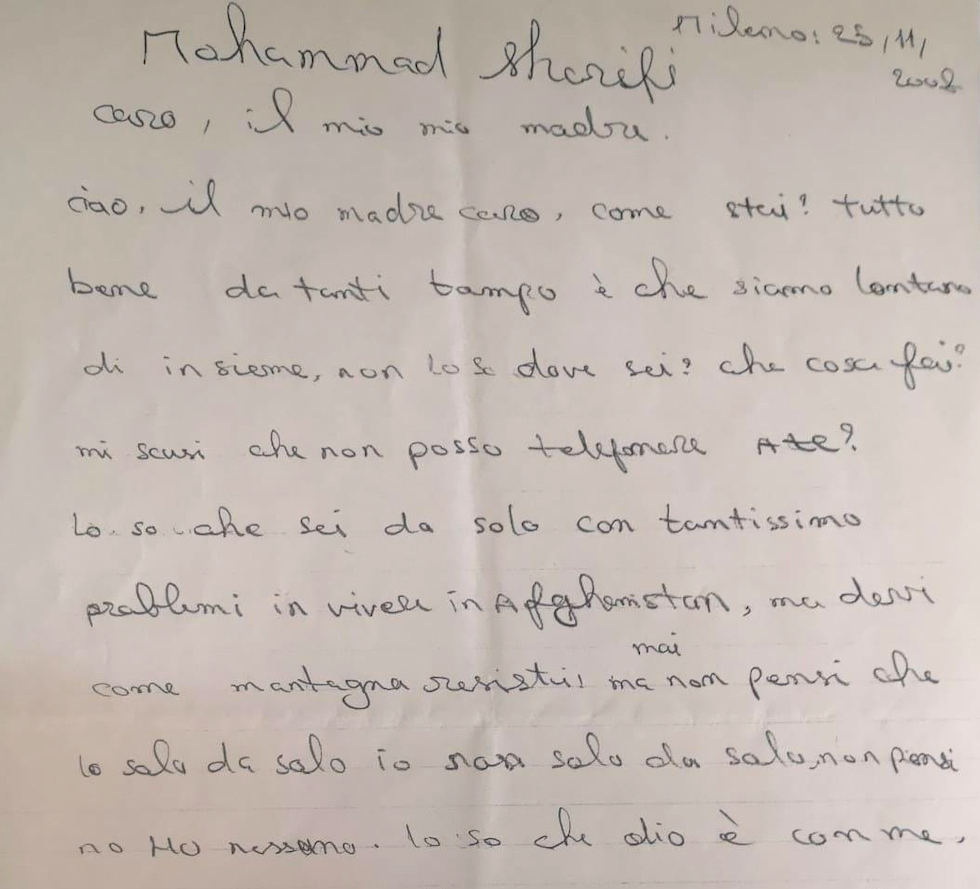 Mohammad Sharifi
Milano: 25, 11,
2002
caro, il mio mio madre.
ciao, il mio madre caro, come stai? tutto
bene da tanti tampo è che siamo lontano
di insieme, non lo so dove sei? che cosa fai?
mi scusi che non posso telefonare A te?
Lo so che sei da solo con tantissimo
problemi in vivere in Afghanistan, ma devi
come mantagna resisti, ma non mai pensi che
Io solo da solo io non solo da solo, non pensi
no Ho nessuno. lo so che dio è con me.